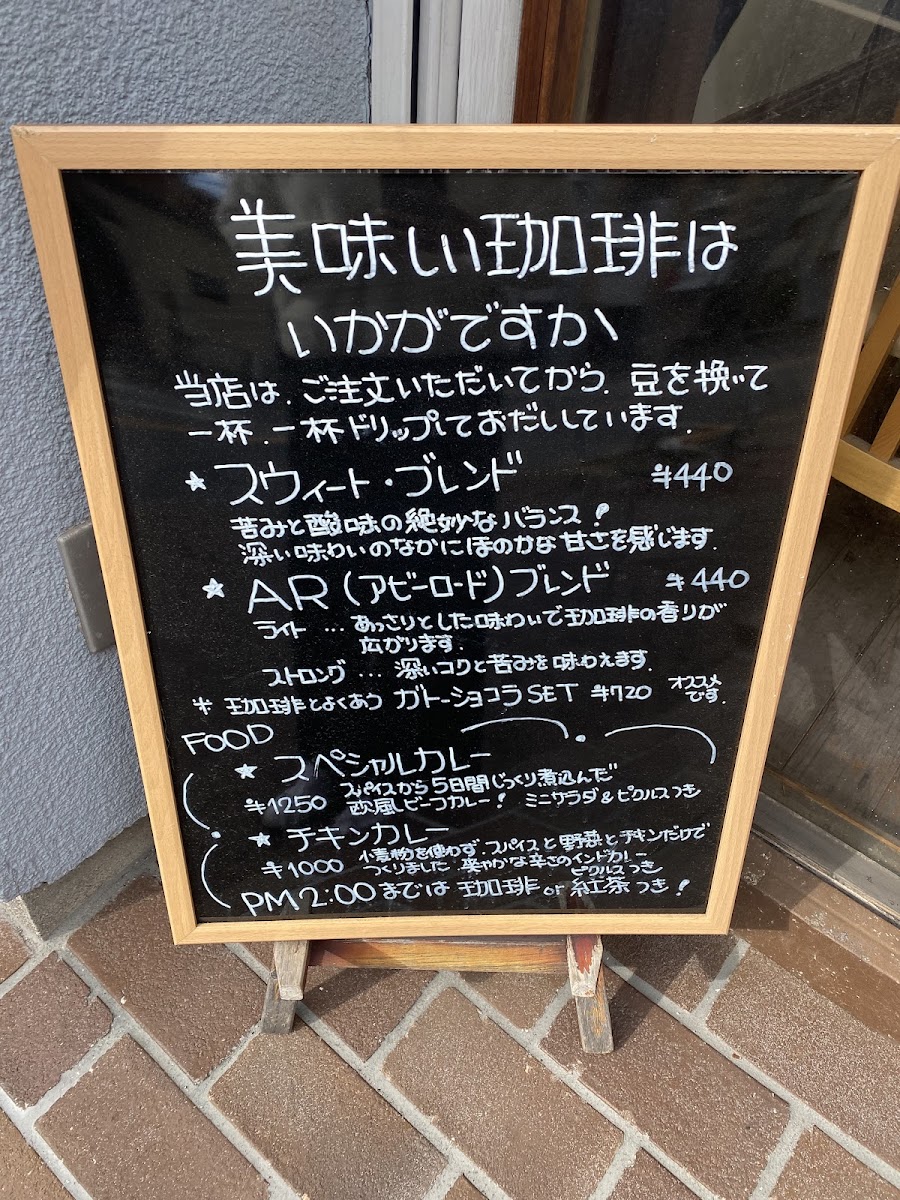 美味しい珈琲は
いかがですか
当店は、ご注文いただいてから、豆を挽いて
一杯、一杯ドリップしておだししています。
★ スウィート・ブレンド ¥440
苦みと酸味の絶妙なバランス!
深い味わいのなかにほのかな甘さを感じます。
★ AR(アビーロード)ブレンド ¥440
ライト … あっさりとした味わいで珈琲の香りが
広がります。
ストロング … 深いコクと苦みを味わえます。
* 珈琲とよくあう ガトーショコラSET ¥720 オススメです。
FOOD
★ スペシャルカレー
スパイスから5日間じっくり煮込んだ
¥1250 欧風ビーフカレー! ミニサラダ&ピクルスつき
★ チキンカレー
小麦粉を使わず、スパイスと野菜とチキンだけで
¥1000 つくりました。爽やかな辛さのインドカレー
ピクルスつき
PM.2:00 までは 珈琲 or 紅茶つき!